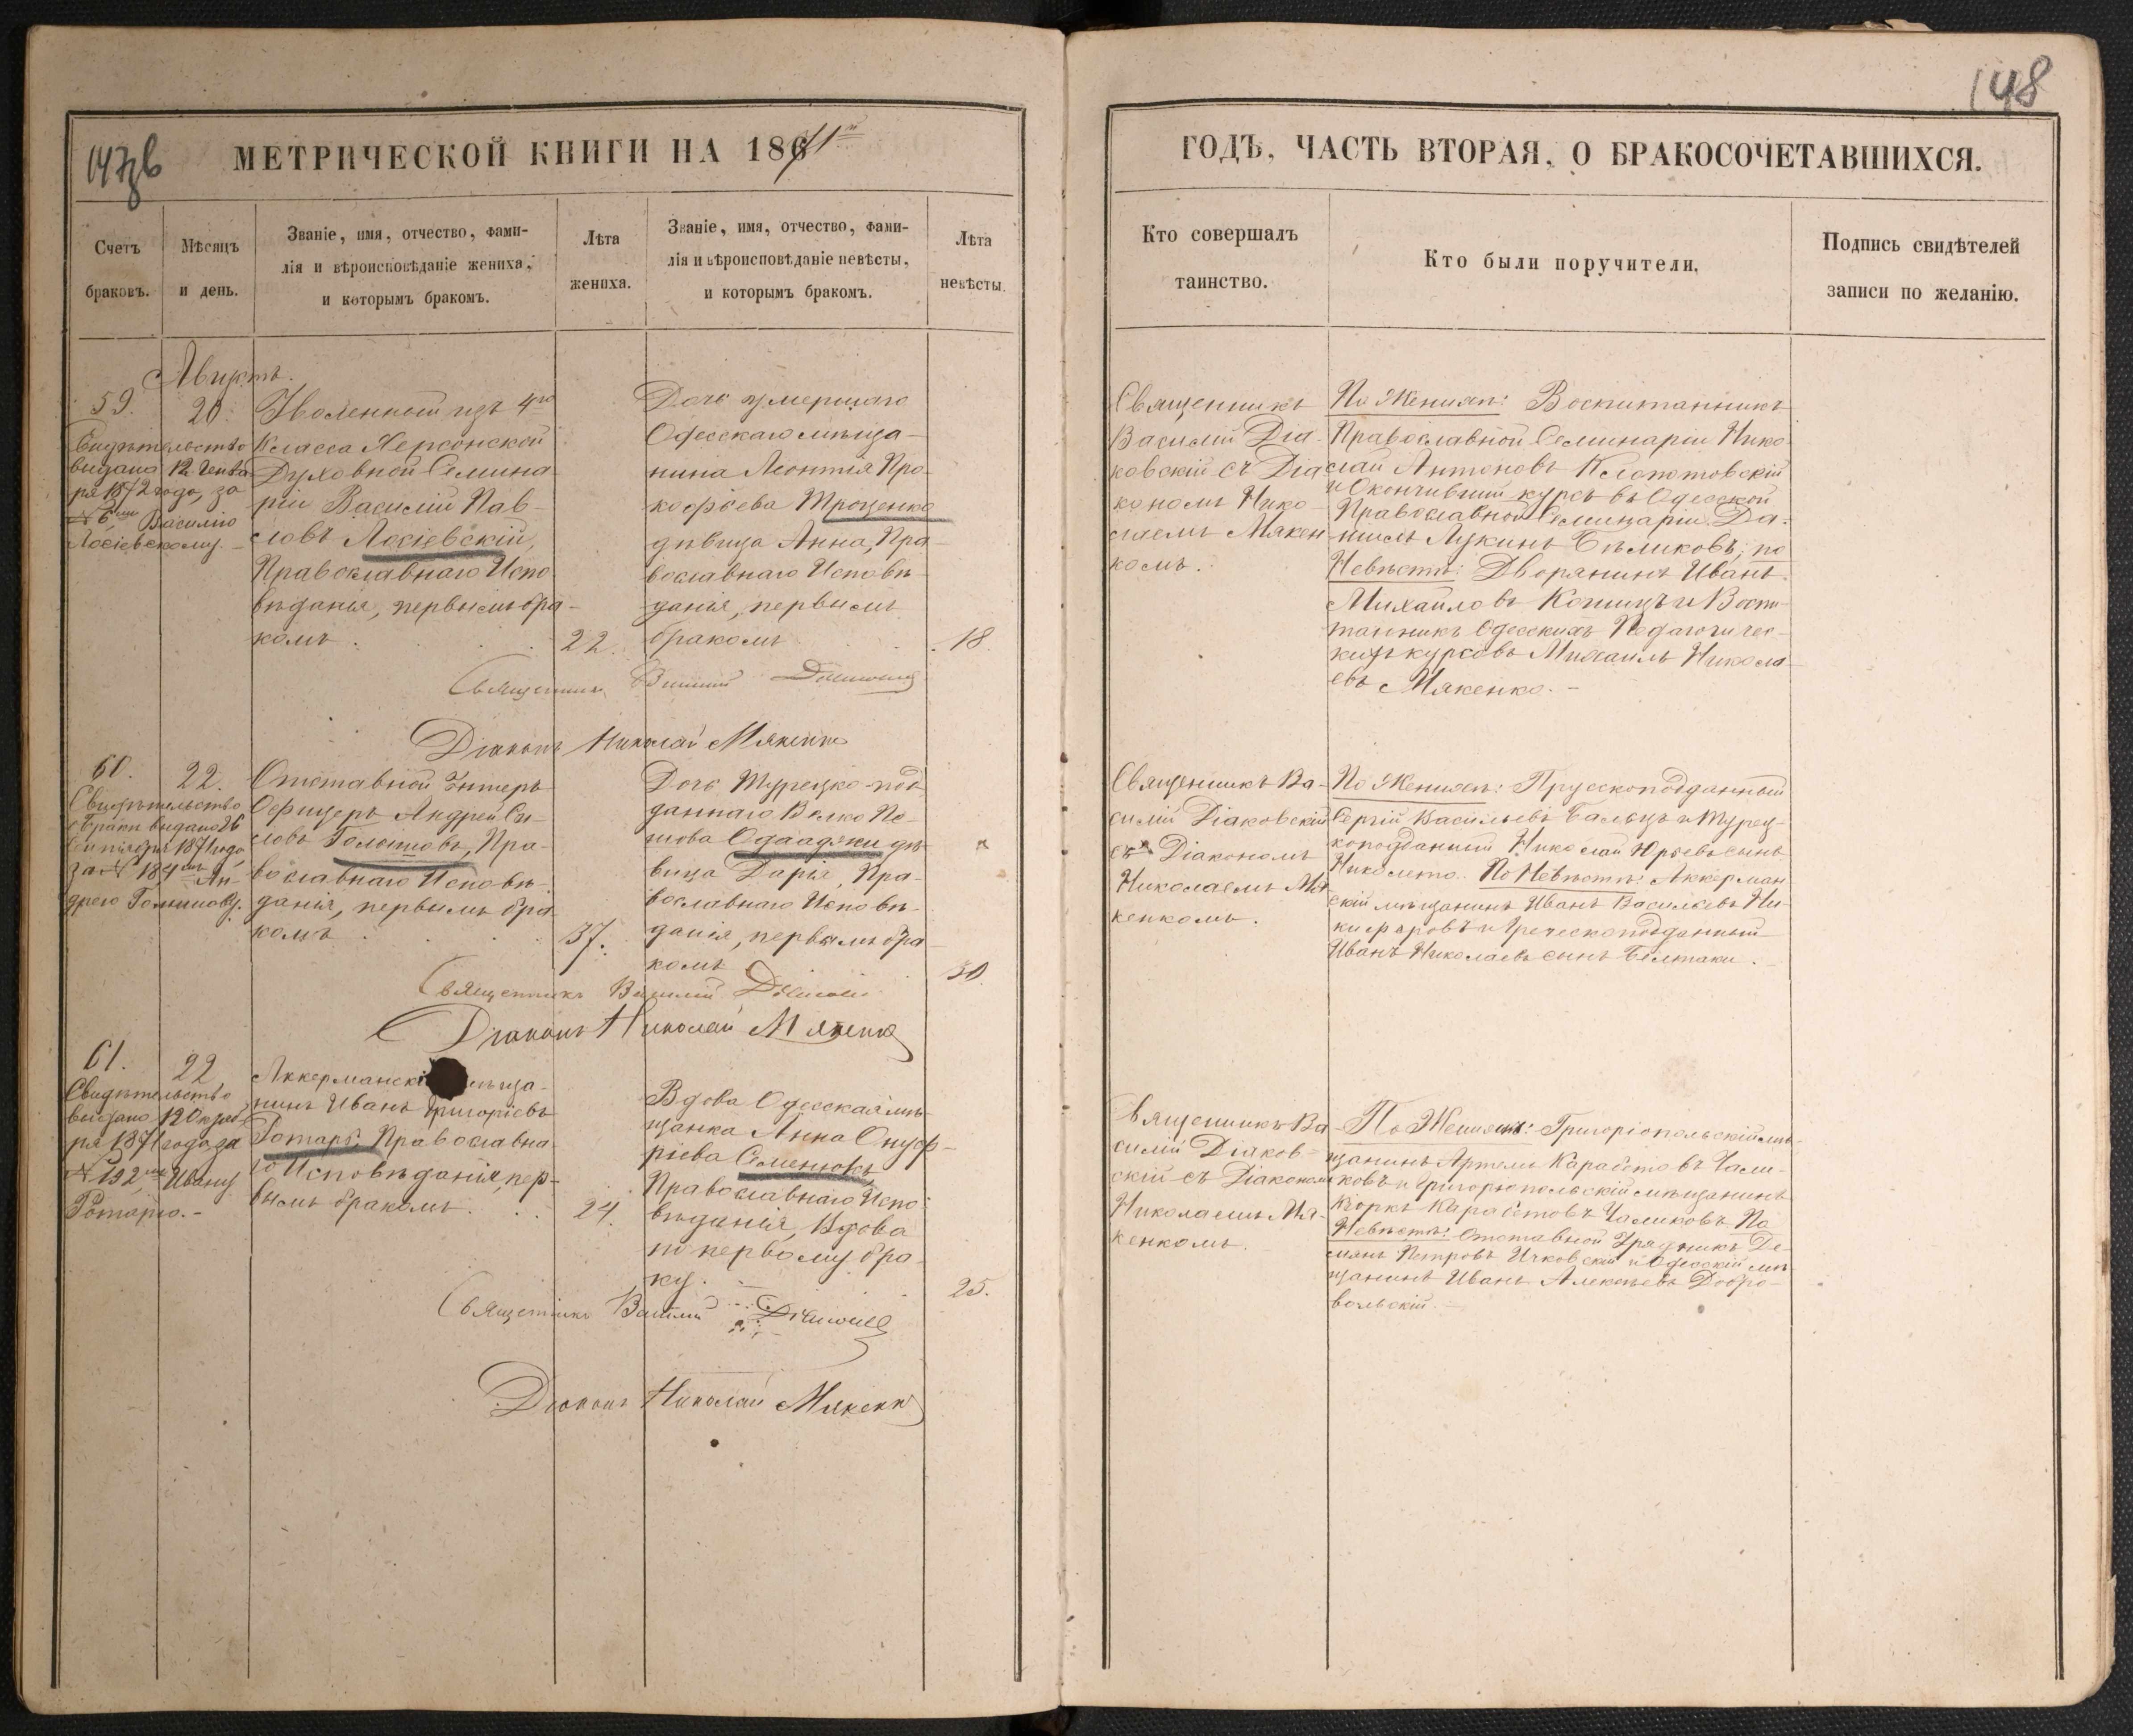 148
МЕТРИЧЕСКОЙ КНИГИ НА 1871
ГОДЪ, ЧАСТЬ ВТОРАЯ, О БРАКОСОЧЕТАВШИХСЯ.
Счетъ
браковъ.
Мѣсяцъ
и день.
Званіе, имя, отчество, фами-
лія и вѣроисповѣданіе жениха,
и которымъ бракомъ.
Лѣта
жениха.
Званіе, имя, отчество, фами-
лія и вѣроисповѣданіе невѣсты,
и которымъ бракомъ.
Лѣта
невѣсты.
Кто совершалъ
таинство.
Кто были поручители.
Подпись свидѣтелей
записи по желанію.
Августъ.
59.
Свидѣтельство
выдано 12 Генва
ря 1872 года, за
№ 6 Василію
Лосіевскому.
20.
Уволенный изъ 4го
Класса Херсонской
Духовной Семина-
ріи Василій Пав-
ловъ Лосіевскій,
Православнаго Испо-
вѣданія, первымъ бра-
комъ.
22.
Дочь умершаго
Одесскаго мѣща-
нина Леонтія Про-
кофьева Троценко
дѣвица Анна, Пра-
вославнаго Исповѣ-
данія, первымъ
бракомъ
18.
Священникъ
Василій Діа-
ковскій съ Діа
кономъ Нико-
лаемъ Мякен
комъ.
По Женихѣ: Воспитанникъ
Православной Семинаріи Нико-
лай Антоновъ Клопотовскій
и Окончившій курсъ въ Одесской
Православной Семинаріи Да-
ніилъ Лукинъ Бѣликовъ; по
Невѣстѣ: Дворянинъ Иванъ
Михайловъ и Воспи-
танникъ Одесскихъ Педагогичес-
кихъ курсовъ Михаилъ Никола-
евъ Мякенко.
Священникъ Василій
Діаконъ Николай Мякенко
60.
Свидѣтельство
о бракѣ выдано 26
Сентября 1871 года,
за № 184 Ан-
дрею Голошову.
22.
Отставной Унтеръ
Офицеръ Андрей Си-
ловъ Голошовъ, Пра-
вославнаго Исповѣ-
данія, первымъ бра
комъ
37.
Дочь Турецко-под-
даннаго Велко Пе-
дѣ-
вица Дарія, Пра-
вославнаго Исповѣ-
данія, первымъ бра-
комъ
30
Священникъ Ва-
силій Діаковскій
съ Діакономъ
Николаемъ Мя-
кенкомъ.
По Женихѣ: Прусскоподданный
Сергій Васильевъ Бальцъ и Турец-
коподданный Николай Юрьевъ сынъ
По Невѣстѣ: Аккерман
скій мѣщанинъ Иванъ Васильевъ Ни-
кифоровъ и Греческоподданный
Иванъ Николаевъ сынъ
Священникъ Василій
Діаконъ Николай Мякенко
61.
Свидѣтельство
выдано 12 Октяб-
ря 1871 года, за
№ 192 Ивану
Ротарю.-
22
Аккерманскі мѣща-
нинъ Иванъ Григорьевъ
Ротарь, Православна-
го Исповѣданія, пер-
вымъ бракомъ.
24.
Вдова Одесская мѣ-
щанка Анна Онуф-
ріева Семенюкъ,
Православнаго Испо-
вѣданія, Вдова
по первому бра-
ку.
25.
Священникъ Ва-
силій Діаков-
скій съ Діакономъ
Николаемъ Мя-
кенкомъ.
По Женихѣ: Григоріопольскій мѣ-
щанинъ Артемъ Карабетовъ Чали-
ковъ и Григоріопольскій мѣщанинъ
Кіоркъ Карабетовъ Чаликовъ По
Невѣстѣ: Отставной Урядникъ Де-
мьянъ Петровъ и Одесскій мѣ-
щанинъ Иванъ Алексѣевъ Добро-
вольскій.
Священникъ Василій
Діаконъ Николай Мякенко